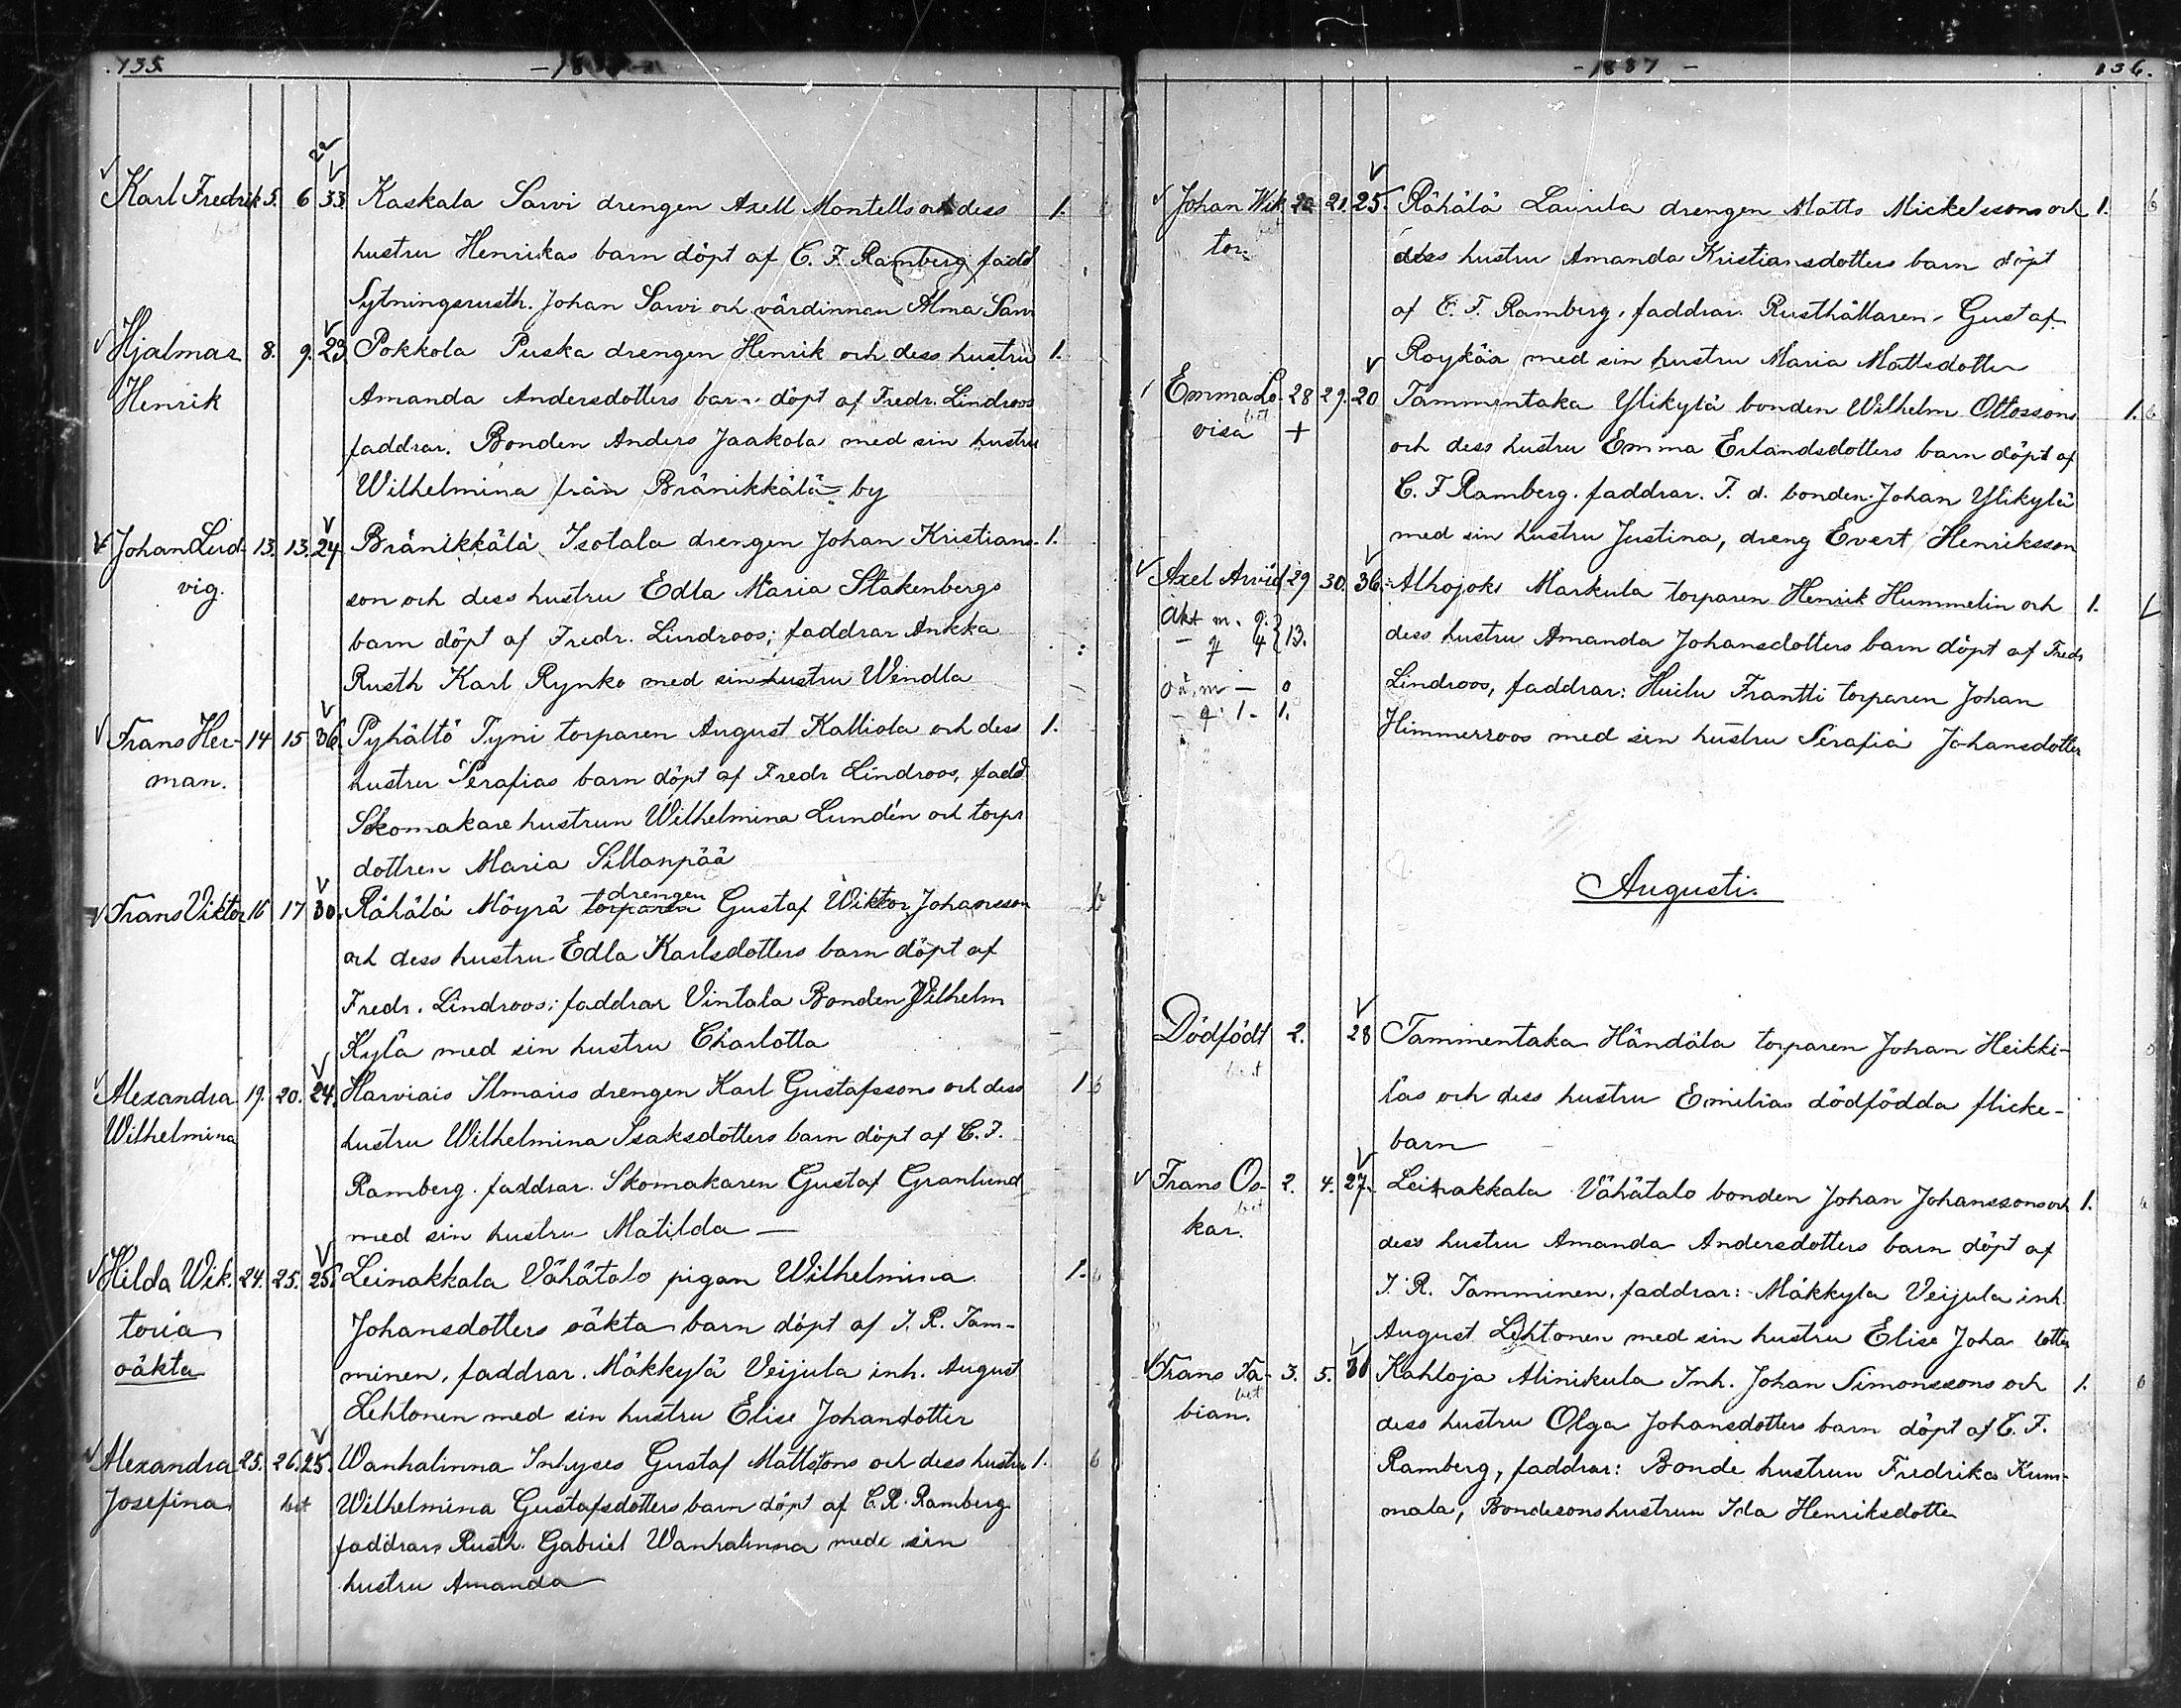 135.
Karl Fredrik 5. 6 33. Kaskala Sarvi drengen Axell Montells och dess 1.
hustru Henrikas barn döpt af C. F. Ramberg fadd
Sytningsrusth. Johan Sarvi och värdinnan Alma Sarvi
Hjalmar 8. 9. 23. Pokkola Puska drengen Henrik och dess hustru 1.
Henrik Amanda Andersdotters barn döpt af Fredr. Lindroos
faddrar. Bonden Anders Jaakola med sin hustru
Wilhelmina från Bränikkälä by
Johan Lud- 13. 13. 24. Bränikkälä Isotala drengen Johan Kristians- 1.
vig. son och dess hustru Edla Maria Stakenbergs
barn döpt af Fredr. Lindroos; faddrar Ankka
Rusth Karl Rynko med sin hustru Wendla
Frans Her- 14 15 36. Pyhältö Tyni torparen August Kalliola och dess 1.
man. hustru Serafias barn döpt af Fredr Lindroos, fadd
Skomakare hustrun Wilhelmina Lundén och torps
dottren Maria Sillanpää
drengen
Frans Viktor 16 17 30. Rähälä Möyrä torparen Gustaf Wiktor Johansson
och dess hustru Edla Karlsdotters barn döpt af
Fredr. Lindroos; faddrar Vintala Bonden Wilhelm
Kylä med sin hustru Charlotta
Alexandra 19. 20. 24. Harviais Ilmaris drengen Karl Gustafssons och dess 1 6
Wilhelmina hustru Wilhelmina Isaksdotters barn döpt af C. F.
Ramberg. faddrar. Skomakaren Gustaf Granlund
med sin hustru Matilda —
Hilda Wik. 24. 25. 25. Leinakkala Vähätalo pigan Wilhelmina 1. 6
toria Johansdotters oäkta barn döpt af J. R. Tam-
oäkta minen, faddrar. Mäkkylä Veijula inh. August
Lehtonen med sin hustru Elise Johandotter
Alexandra 25. 26. 25. Wanhalinna Inhyses Gustaf Mattssons och dess hustru 1. 6
Josefina bet Wilhelmina Gustafsdotters barn döpt af C. R. Ramberg
faddrar Rusth. Gabriel Wanhalinna mede sin
hustru Amanda
- 1887 - 136.
Johan Wik 20 21. 25. Rähälä Laurila drengen Matts Mickelssons och 1. 6
tor. bet dess hustru Amanda Kristiansdotters barn döpt
af C. F. Ramberg, faddrar. Rusthållaren Gustaf
Roykää med sin hustru Maria Mattsdotter
Emma Lo- 28 29. 20 Tammentaka Ylikylä bonden Wilhelm Ottossons 1. 6
visa bet + och dess hustru Emma Erlandsdotters barn döpt af
C. F Ramberg. faddrar. F. d. bonden Johan Ylikylä
med sin hustru Justina, dreng Evert Henriksson
Axel Arvid 29 30. 36. Alhojoki Markula torparen Henrik Hummelin och 1.
Äkt m. 9. dess hustru Amanda Johansdotters barn döpt af Fredr
- q 4 } 13.
Lindroos, faddrar: Huilu Frantti torparen Johan
oä. m — 0
- q. 1. 1.
Himmerroos med sin hustru Serafia Johansdotter
Augusti.
Dödfödt 2. 28 Tammentaka Händälä torparen Johan Heikki- 0
bet läs och dess hustru Emilias dödfödda flicke-
barn
Frans Os- 2. 4. 27. Leinakkala Vähätalo bonden Johan Johanssons och 1. 6
kar. bet dess hustru Amanda Andersdotters barn döpt af
J. R. Tamminen, faddrar: Mäkkyla Veijula inh.
August Lehtonen med sin hustru Elise Joha dotter
Frans Fa- 3. 5. Kahloja Alinikula Inh. Johan Simonssons och 1. 6
bian. bet dess hustru Olga Johansdotters barn döpt af C. F.
Ramberg, faddrar: Bonde hustrun Fredrika Kum-
mala, Bondesonshustrun Ida Henriksdotter